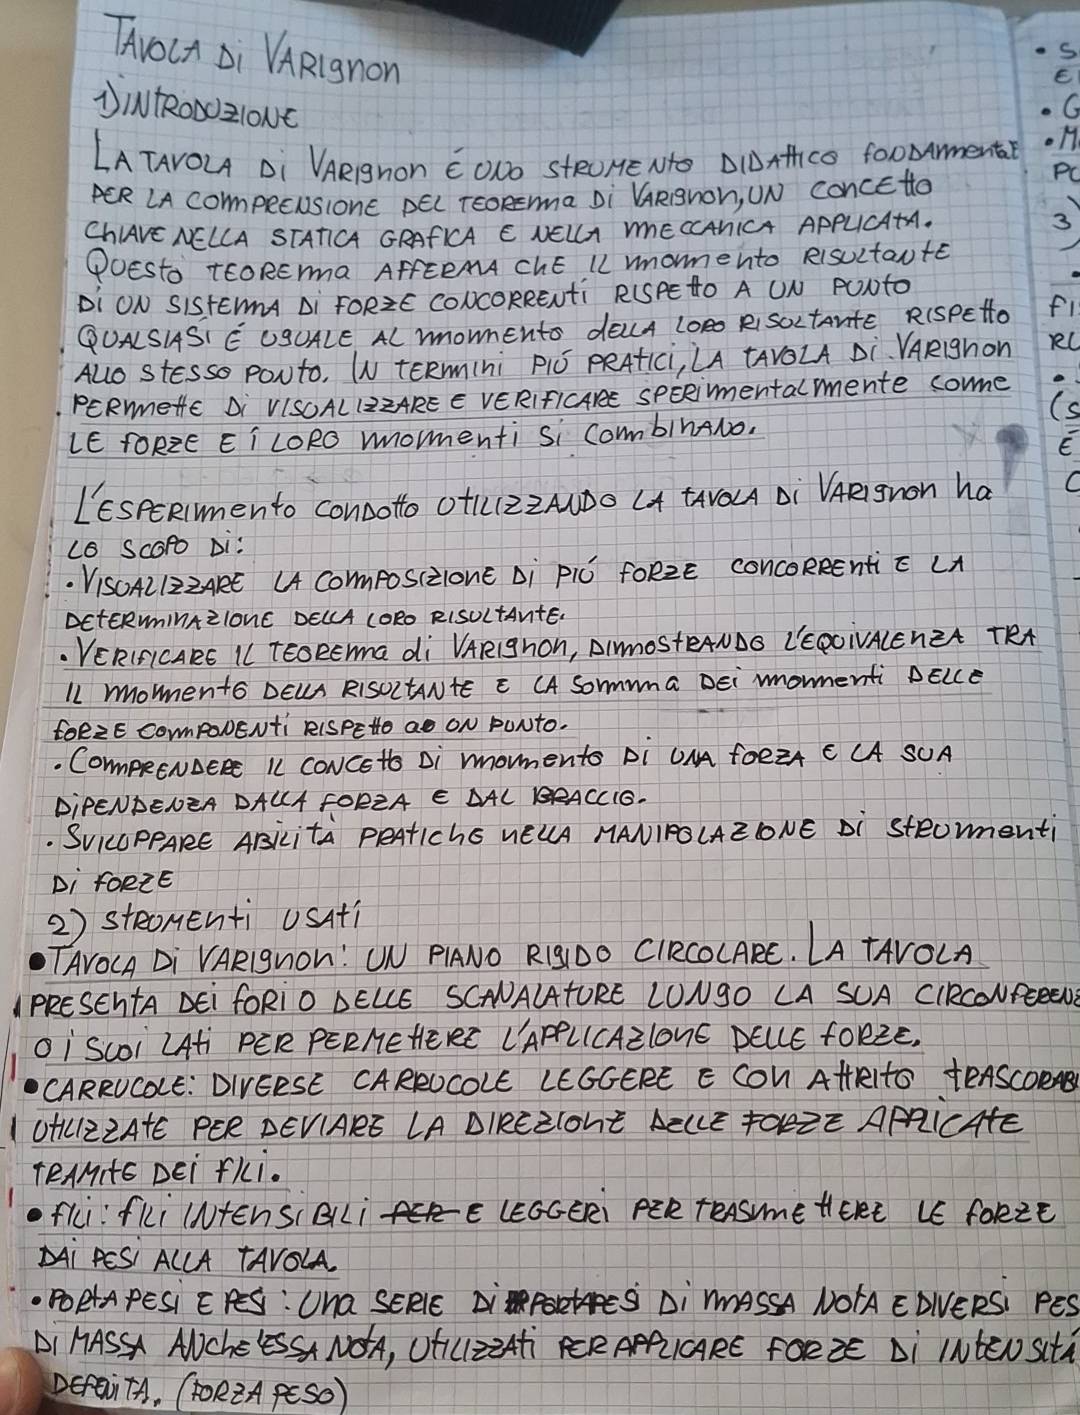 TAVOLA Di VARIgnon
1) INTRODUZIONE
LA TAVOLA Di VARIgnon É UNO STRUMENTO DIDATTICO FONDAmmental
PER LA COMPRENSIONE DEL TEOREMA Di VARIgnon, UN CONCETTO
CHIAVE NELLA STATICA GRAFICA E NELLA MECCANICA APPLICATA.
QUESTO TEOREMA AFFERMA CHE IL momento RISULTANTE
Di UN SISTEMA Di FORZE CONCORRENTI RISPETTO A UN PUNTO
QUALSIASI É UGUALE AL momento dELLA LORO RISULTANTE RISPETTO
ALLO STESSO PUNTO. IN TERMINI PIÚ PRATICI, LA TAVOLA Di VARIgnon
PERMETTE Di VISUALIZZARE E VERIFICARE SPERIMENTALMENTE COME
LE FORZE E i LORO momenti Si COMBINANO.
L'ESPERIMENTO CONDOTTO UTILIZZANDO LA TAVOLA Di VARIgnon ha
LO SCOPO Di:
• VISUALIZZARE LA COMPOSIZIONE Di PIÚ FORZE CONCORRENTI E LA
DETERMINAZIONE DELLA LORO RISULTANTE.
• VERIFICARE IL TEOREMA di VARIgnon, DIMOSTRANDO L'EQUIVALENZA TRA
IL momento DELLA RISULTANTE E LA SOMMA DEI momenti DELLE
FORZE COMPONENTI RISPETTO ad UN PUNTO.
• COMPRENDERE IL CONCETTO Di momento Di UNA FORZA E LA SUA
DIPENDENZA DALLA FORZA E DAL BRACCIO.
• SVILUPPARE ABILITÀ PRATICHE NELLA MANIPOLAZIONE Di STRUMENTI
Di FORZE
2) STRUMENTI USATI
• TAVOLA Di VARIgnon: UN PIANO RIGIDO CIRCOLARE. LA TAVOLA
PRESENTA DEI FORI O DELLE SCANALATURE LUNGO LA SUA CIRCONFERENZ
O I SUOI LATI PER PERMETTERE L'APPLICAZIONE DELLE FORZE.
• CARRUCOLE: DIVERSE CARRUCOLE LEGGERE E CON ATTRITO TRASCORAB
UTILIZZATE PER DEVIARE LA DIREZIONE DELLE FORZE APPLICATE
TRAMITE DEI FILI.
• FILI: FILI INTENSIBILI PER E LEGGERI PER TRASMETTERE LE FORZE
DAI PESI ALLA TAVOLA.
• PORTA PESI E PESI: UNA SERIE Di PORTAPESI Di MASSA NOTA E DIVERSI PES
Di MASSA ANCHE ESSA NOTA, UTILIZZATI PER APPLICARE FORZE Di INTENSITÀ
DEFENITA. (FORZA PESO)
• S
E
• G
• M
PO
3)
•
FI
RU
•
(S
E
C